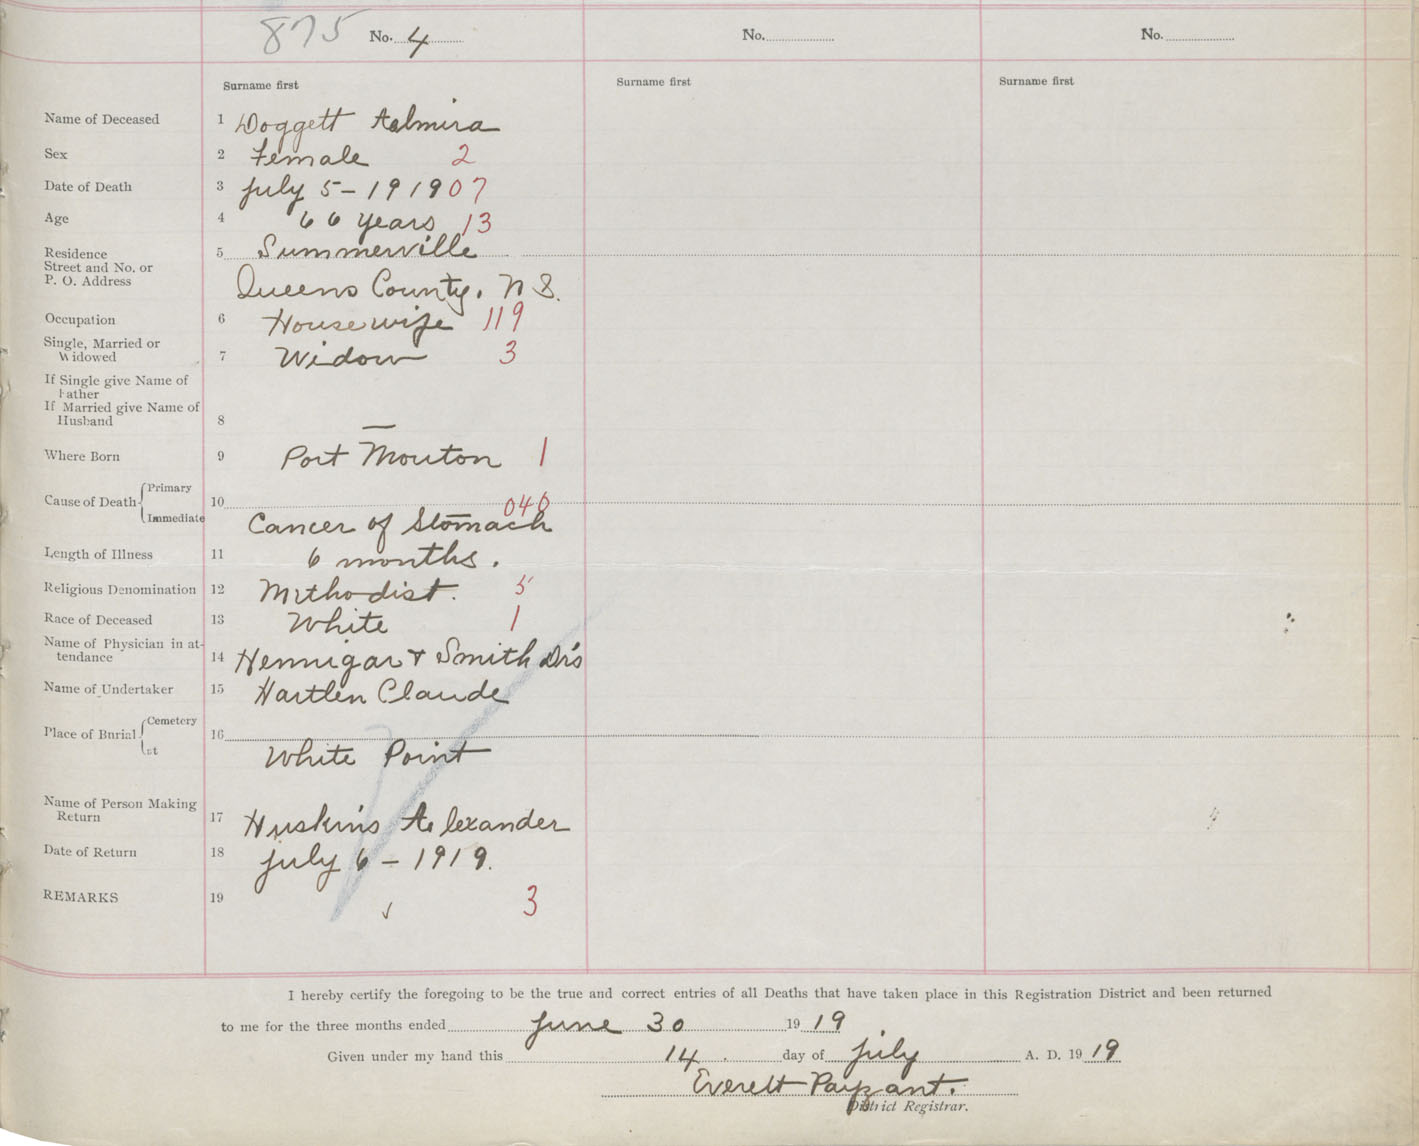 875 No. 4 No. No.
Surname first Surname first Surname first
Name of Deceased 1 Doggett Aelmira
Sex 2 Female 2
Date of Death 3 July 5-1919 07
Age 4 66 years 13
Residence 5 Summerville
Street and No. or
P. O. Address Queens County. N S.
Occupation 6 Housewife 119
Single, Married or
Widowed 7 Widow 3
If Single give Name of
Father
If Married give Name of
Husband 8 —
Where Born 9 Port Mouton 1
Cause of Death Primary 10 040
Immediate Cancer of Stomach
Length of Illness 11 6 months.
Religious Denomination 12 Methodist. 5
Race of Deceased 13 White 1
Name of Physician in at-
tendance 14 Hennigar & Smith Drs
Name of Undertaker 15 Hartlen Claude
Place of Burial Cemetery 16
at White Point
Name of Person Making
Return 17 Huskins Alexander
Date of Return 18 July 6-1919.
REMARKS 19 3
I hereby certify the foregoing to be the true and correct entries of all Deaths that have taken place in this Registration District and been returned
to me for the three months ended June 30 1919
Given under my hand this 14 day of July A. D. 1919
Everett Payzant.
District Registrar.